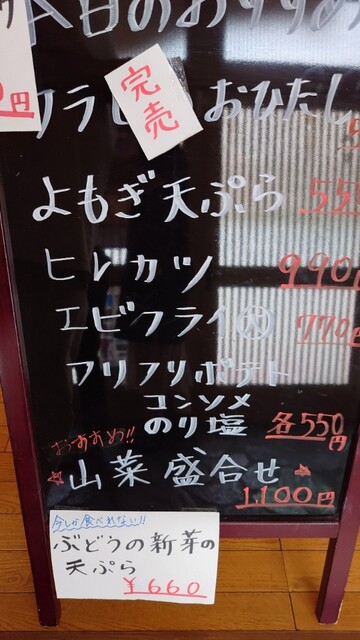 本日のおすすめ
円
完売
おひたし
よもぎ天ぷら 550
ヒレカツ 990円
エビフライ 770円
フリフリポテト
コンソメ
のり塩 各550円
おすすめ!!
山菜盛合せ
1,100円
今しか食べれない!!
ぶどうの新芽の
天ぷら
¥660